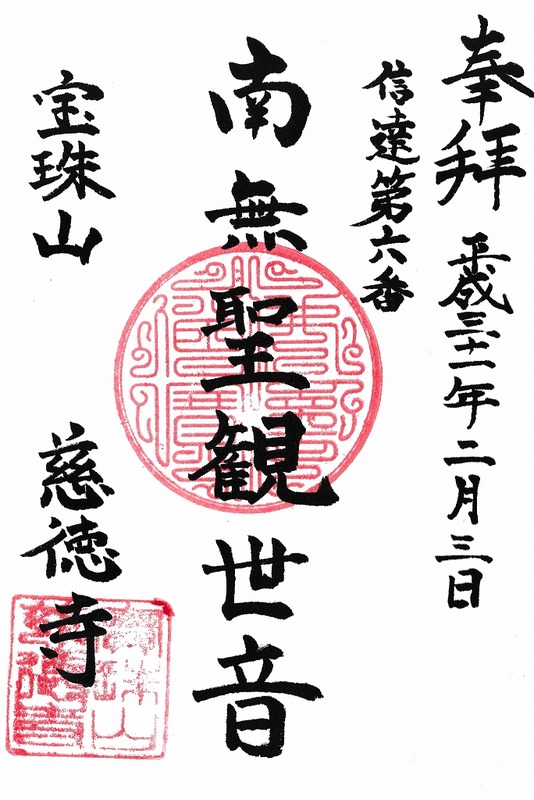 奉拝 平成三十一年二月三日
信達第六番
南無聖観世音
宝珠山 慈徳寺